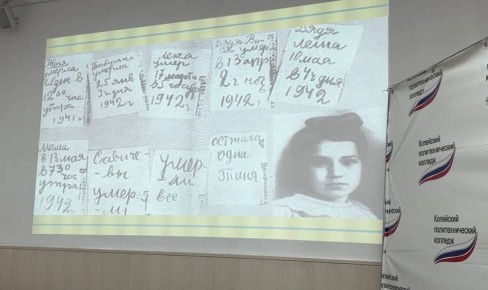 Женя
умерла
28 дек в
12 00
час
утра
1941 г
Бабушка
умерла
25 янв
3 ч дня
1942 г
Лека
умер
17 марта
в 5 час утр
1942 г
Дядя Вася
умер
в 13 апр
2 ч ноч
1942 г
Дядя
Леша
10 мая
в 4 ч дня
1942
Мама
в 13 мая
в 7 30
час
утра
1942 г
Савиче-
вы
умер-
ли
умер
ли
все
осталась
одна
Таня
Копейский
политехнический
колледж
Копейский
политехнический
колледж
Копейский
политехнический
колледж